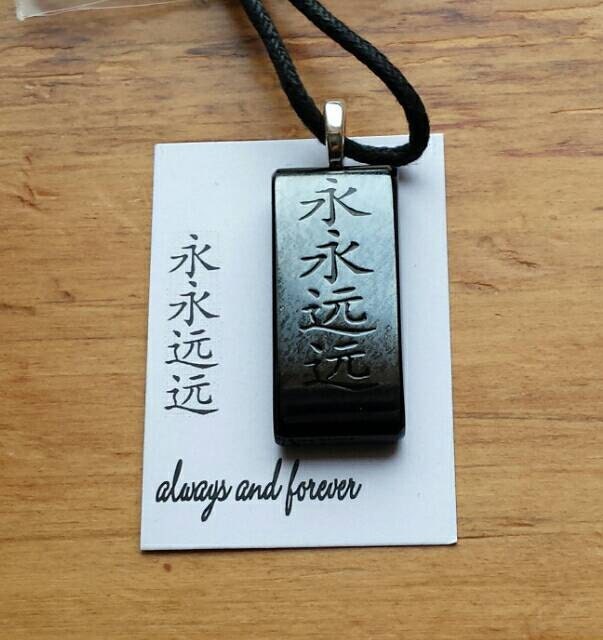 永永远远
永永远远
always and forever